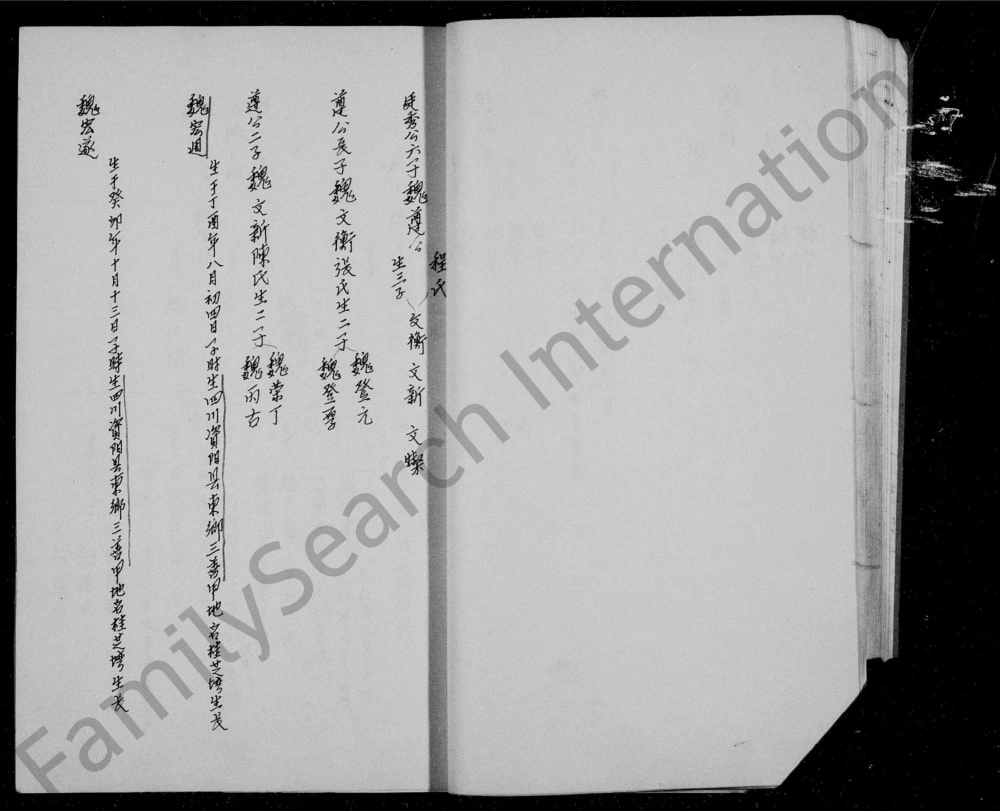 廷秀公六子魏遵公 程氏 生三子 文衡 文新 文燦
遵公長子魏文衡張氏生二子 魏登元 魏登
遵公二子魏文新陳氏生二子 魏荣丁 魏丙古
魏宏週
生于丁酉年八月初四日子時生四川資阳县東鄉三善甲地名桂芝塆生长
魏宏遂
生于癸卯年十月十三日子時生四川資阳县東鄉三善甲地名桂芝塆生长
FamilySearch International